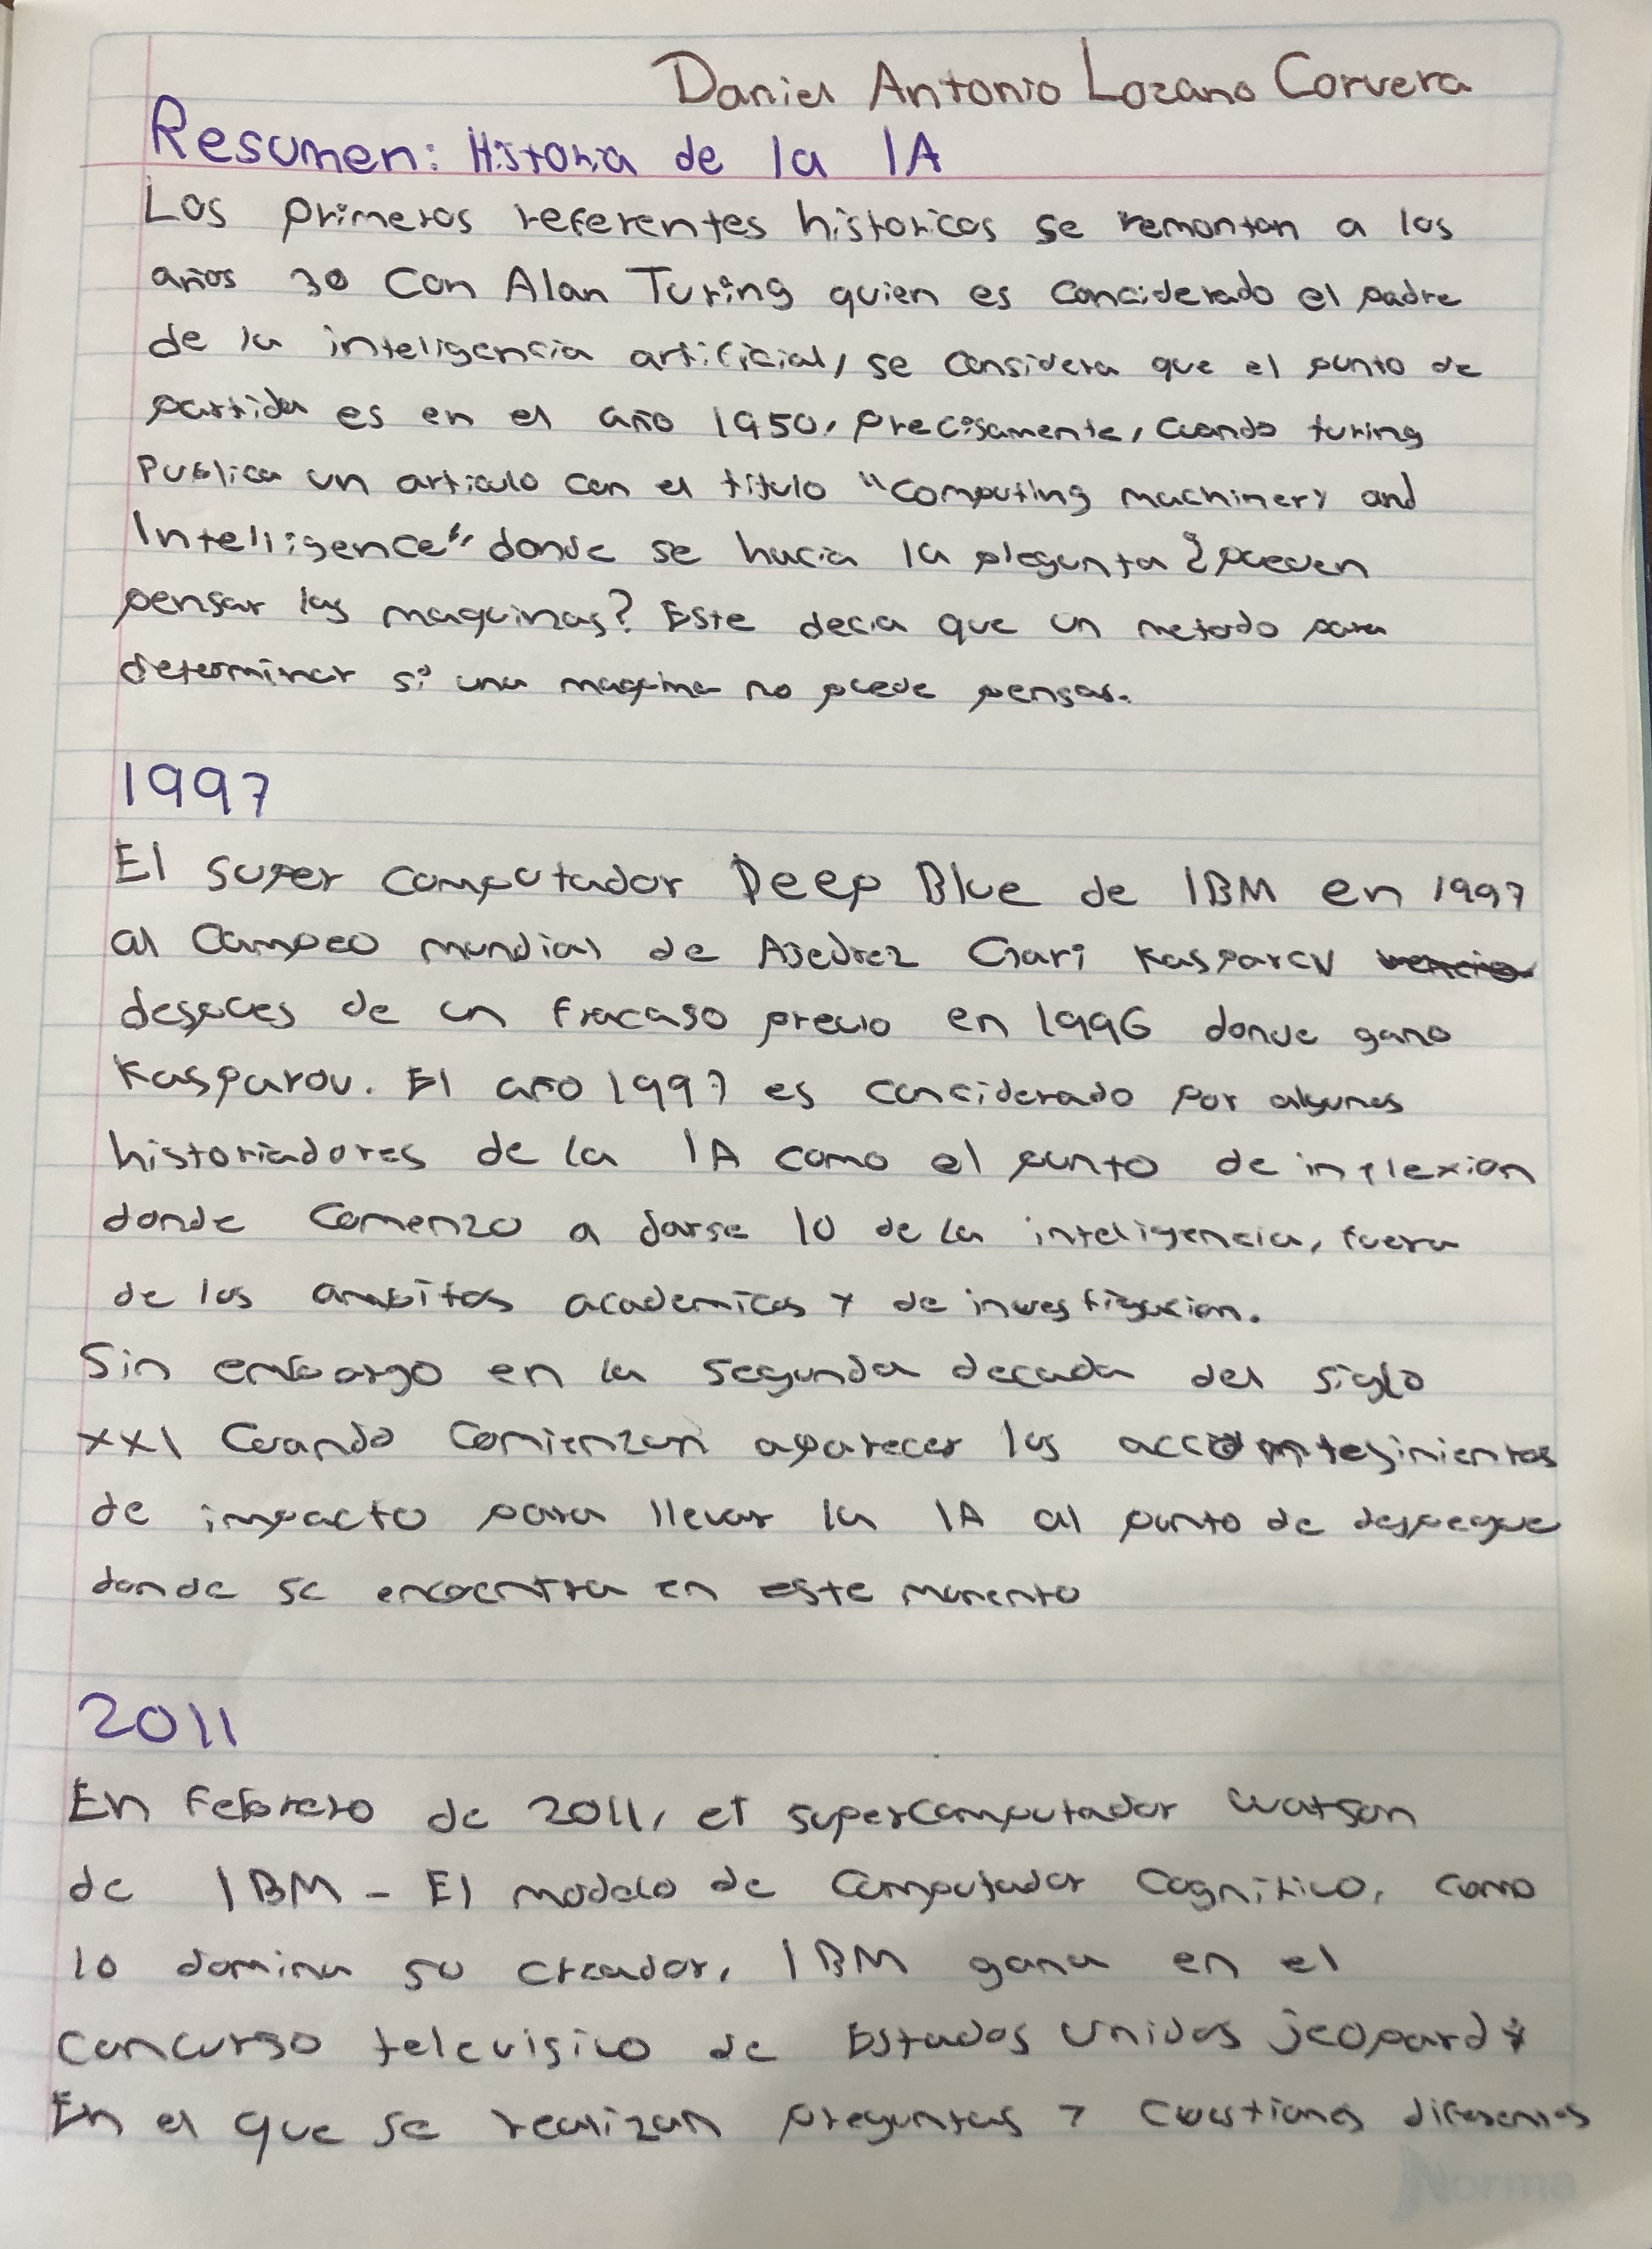 Daniel Antonio Lozano Corvera
Resumen: Historia de la IA
Los primeros referentes historicos se remontan a los
años 30 con Alan Turing quien es conciderado el padre
de la inteligencia artificial, se considera que el punto de
partida es en el año 1950, precisamente, cuando turing
Publica un articulo con el titulo "Computing machinery and
Intelligence" donde se hacia la plegunta ¿pueden
pensar las maquinas? Este decia que un metodo para
determinar si una maquina no puede pensar.
1997
El super computador Deep Blue de IBM en 1997
al Campeo mundial de Ajedrez Gari Kasparov vencio
despues de un fracaso previo en 1996 donde gano
Kasparov. El año 1997 es conciderado por algunos
historiadores de la IA como el punto de inflexion
donde comenzo a darse lo de la inteligencia, fuera
de los ambitos academicos y de investigacion.
Sin embargo en la segunda decada del siglo
XXI Cuando comienzan aparecer los
de impacto para llevar la IA al punto de despegue
donde se encuentra en este momento
2011
En Febrero de 2011, el supercomputador watson
de IBM - El modelo de Computador Cognitivo, como
lo domina su creador, IBM gana en el
concurso televisivo de Estados Unidos jeopardy
En el que se realizan preguntas y cuestiones diferentes
Norma